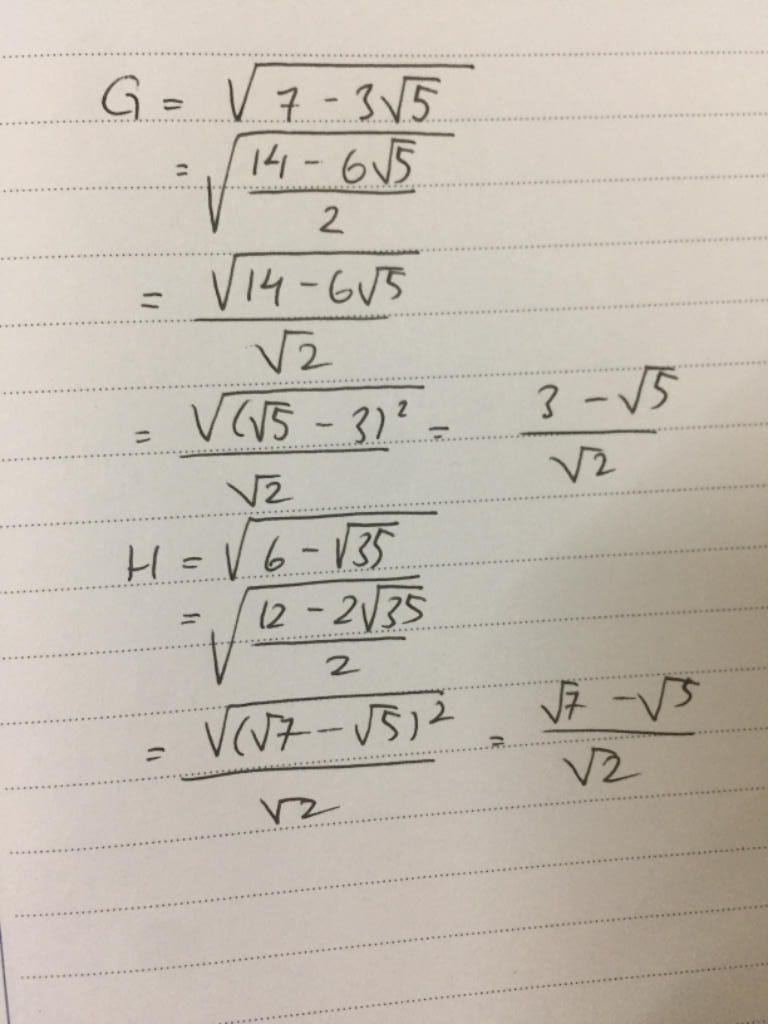 G = √(7 - 3√5)
= √((14 - 6√5)/2)
= √(14 - 6√5)/√2
= √((√5 - 3)²)/√2 = (3 - √5)/√2
H = √(6 - √35)
= √((12 - 2√35)/2)
= √((√7 - √5)²)/√2 = (√7 - √5)/√2